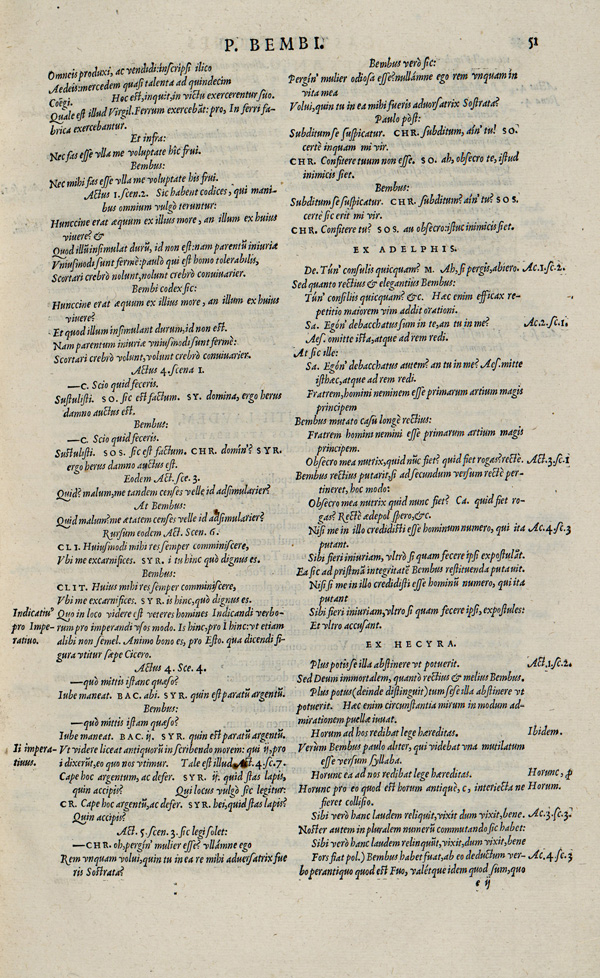 P. BEMBI.
51
Omneis produxi, ac vendidi: inscripsi ilico
Aedeis: mercedem quasi talenta ad quindecim
Coëgi. Hoc est, inquit, in victu exercerentur suo.
Quale est illud Virgil. Ferrum exercebāt: pro, In ferri fa-
brica exercebantur.
Et infra:
Nec fas esse vlla me voluptate hîc frui.
Bembus:
Nec mihi fas esse vlla me voluptate his frui.
Actus 1. scen. 2. Sic habent codices, qui mani-
bus omnium vulgò teruntur:
Hunccine erat æquum ex illius more, an illum ex huius
viuere? &
Quod illū insimulat durū, id non est: nam parentū iniuriæ
Vniusmodi sunt fermè: paulò qui est homo tolerabilis,
Scortari crebrò nolunt, nolunt crebrò conuiuarier.
Bembi codex sic:
Hunccine erat æquum ex illius more, an illum ex huius
viuere?
Et quod illum insimulant durum, id non est.
Nam parentum iniuria vniusmodi sunt fermè:
Scortari crebrò volunt, volunt crebrò conuiuarier.
Actus 4. scena 1.
—C. Scio quid feceris.
Sustulisti. SO. sic est factum. SY. domina, ergo herus
damno auctus est.
Bembus:
—C. Scio quid feceris.
Sustulisti. SOS. sic est factum. CHR. domin'? SYR.
ergo herus damno auctus est.
Eodem Act. sce. 3.
Quid? malum, me tandem censes velle id adsimularier?
At Bembus:
Quid malum? me ætatem censes velle id adsimularier?
Rursum eodem Act. Scen. 6.
CLI. Huiusmodi mihi res semper comminiscere,
Vbi me excarnifices. SYR. i tu hinc quò dignus es.
Bembus:
CLIT. Huius mihi res semper comminiscere,
Vbi me excarnifices. SYR. is hinc, quò dignus es.
Indicatiuū
pro Impe-
ratiuo.
Quo in loco videre est veteres homines Indicandi verbo-
rum pro imperandi vsos modo. Is hinc, pro I hinc: vt etiam
alibi non semel. Animo bono es, pro Esto. qua dicendi fi-
gura vtitur sæpe Cicero.
Actus 4. Sce. 4.
—quò mittis istanc quæso?
Iube maneat. BAC. abi. SYR. quin est paratū argentū.
Bembus:
—quò mittis istam quæso?
Iube maneat. BAC. ij. SYR. quin est paratū argentū.
Ii impera-
tiuus.
Vt videre liceat antiquorū in scribendo morem: qui ij, pro
i dixerūt, eo quo nos vtimur. Tale est illud Act. 4. sc. 7.
Cape hoc argentum, ac defer. SYR. ij. quid stas lapis,
quin accipis? Qui locus vulgò sic legitur:
CR. Cape hoc argentū, ac defer. SYR. hei, quid stas lapis?
Quin accipis?
Act. 5. scen. 3. sic legi solet:
—CHR. oh, pergin' mulier esse? vllámne ego
Rem vnquam volui, quin tu in ea re mihi aduersatrix fue
ris Sostrata?
Bembus verò sic:
Pergin' mulier odiosa esse? nullámne ego rem vnquam in
vita mea
Volui, quin tu in ea mihi fueris aduorsatrix Sostrata?
Paulo pòst:
Subditum se suspicatur. CHR. subditum, ain' tu? SO.
certè inquam mi vir.
CHR. Confitere tuum non esse. SO. ah, obsecro te, istud
inimicis siet.
Bembus:
Subditum se suspicatur. CHR. subditum? ain' tu? SOS.
certè sic erit mi vir.
CHR. Confitere tu? SOS. au obsecro: istuc inimicis siet.
EX ADELPHIS.
De. Tún' consulis quicquam? M. Ah, si pergis, abiero. Ac. 1. sc. 2.
Sed quanto rectius & elegantius Bembus:
Tún' consiliis quicquam? &c. Hæc enim efficax re-
petitio maiorem vim addit orationi.
Sa. Egón' debacchatus sum in te, an tu in me? Ac. 2. sc. 1.
Aes. omitte ista, atque ad rem redi.
At sic ille:
Sa. Egón' debacchatus autem? an tu in me? Aes. mitte
isthæc, atque ad rem redi.
Fratrem, homini neminem esse primarum artium magis
principem
Bembus mutato casu longè rectius:
Fratrem homini nemini esse primarum artium magis
principem.
Obsecro mea nutrix, quid nūc fiet? quid fiet rogas? rectè. Act. 3. sc. 1
Bembus rectius putarit, si ad secundum versum rectè per-
tineret, hoc modo:
Obsecro mea nutrix quid nunc fiet? Ca. quid fiet ro-
gas? Rectè ædepol spero, &c.
Nisi me in illo credidisti esse hominum numero, qui ita Ac. 4. sc. 3
putant.
Sibi fieri iniuriam, vltrò si quam fecere ipsi expostulāt.
Ea sic ad pristinā integritatē Bembus restituenda putauit.
Nisi si me in illo credidisti esse hominū numero, qui ita
putant
Sibi fieri iniuriam, vltro si quam fecere ipsi, expostules:
Et vltro accusant.
EX HECYRA.
Plus potis se illa abstinere vt potuerit. Act. 1. sc. 2.
Sed Deum immortalem, quantò rectius & melius Bembus.
Plus potus (deinde distinguit) tum sese illa abstinere vt
potuerit. Hæc enim circunstantia mirum in modum ad-
mirationem puellæ iuuat.
Horum ad hos redibat lege hæreditas. Ibidem.
Verùm Bembus paulo aliter, qui videbat vna mutilatum
esse versum syllaba.
Horunc ea ad nos redibat lege hæreditas. Horunc, ꝓ
Horunc pro eo quod est horum antiquè, c, interiecta ne Horum.
fieret collisio.
Sibi verò hanc laudem reliquit, vixit dum vixit, bene. Ac. 3. sc. 3.
Noster autem in pluralem numerū commutando sic habet:
Sibi verò hanc laudem relinquūt, vixit, dum vixit, bene
Fors fiat pol.) Bembus habet fuat, ab eo deductum ver- Ac. 4. sc. 3
bo perantiquo quod est Fuo, valétque idem quod sum, quo
e ij